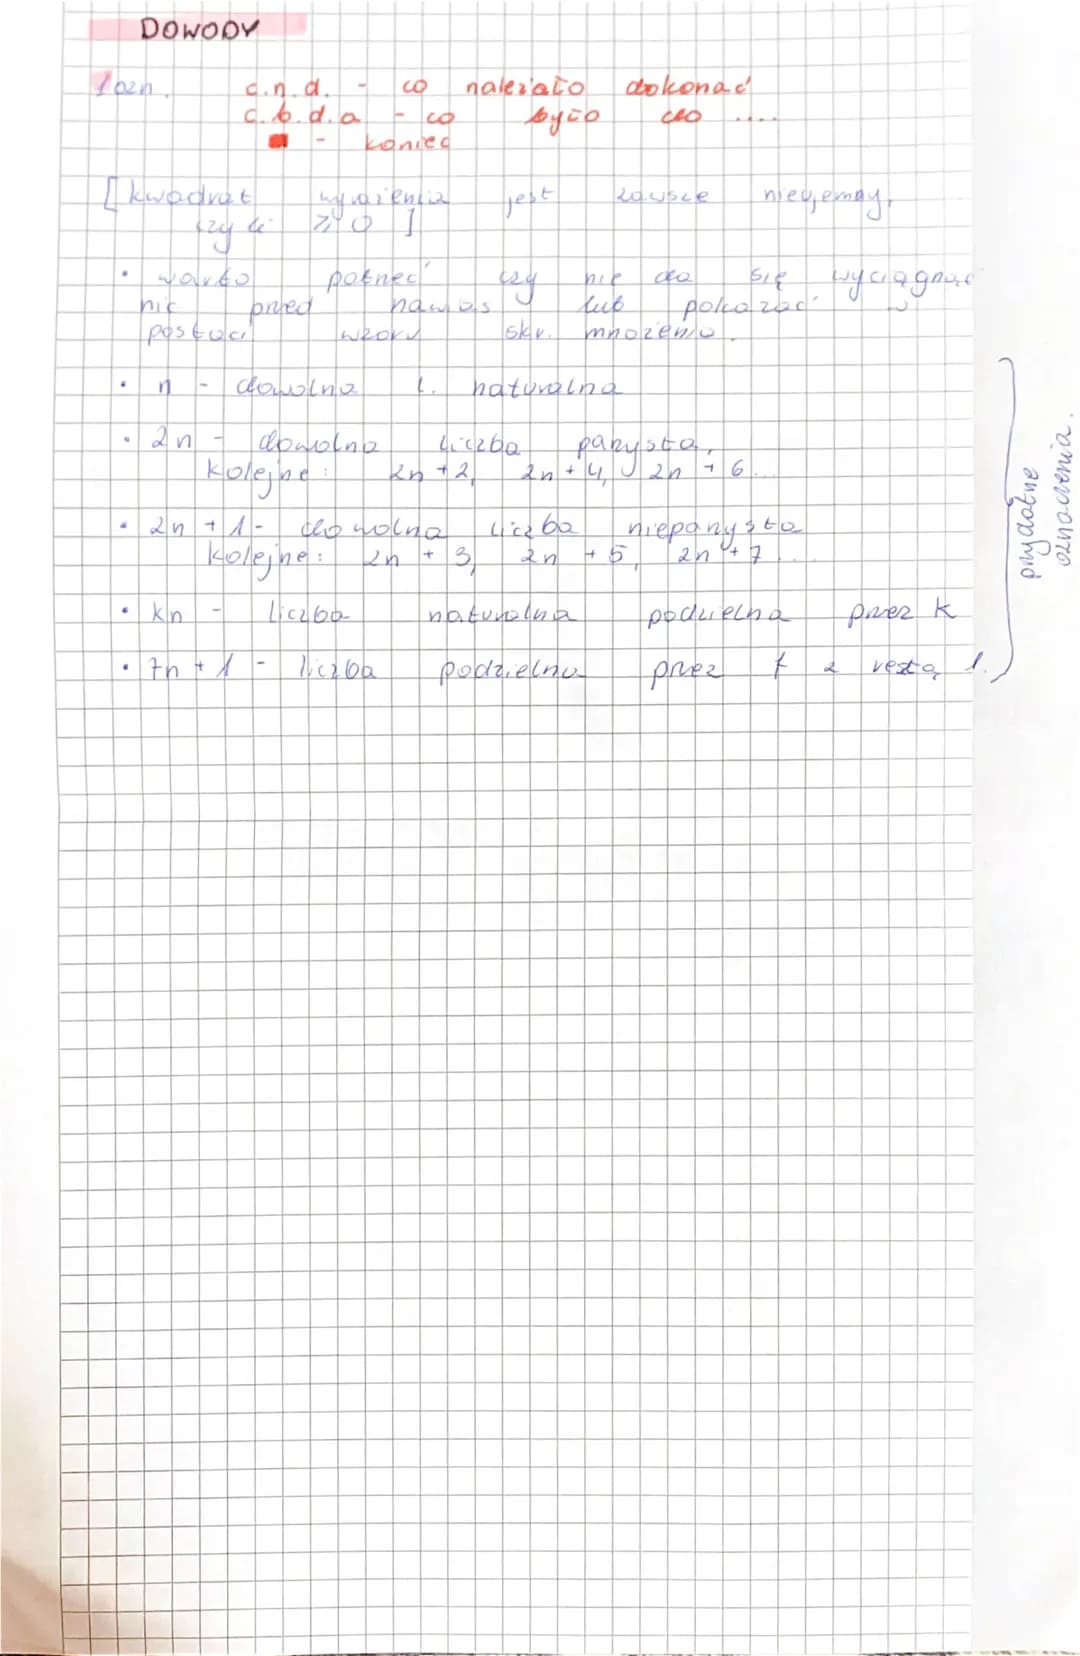 DOWODY
1 ozn. c.n.d. - co należało dokonać
c.b.d.a - co było do ....
■ - koniec
[kwadrat wyrażenia jest zawsze nieujemny,
czyli ≥ 0 ]
• warto patrzeć czy nie da się wyciągnąć
nic przed nawias lub pokazać w
postaci wzoru skr. mnożenia.
• n - dowolna l. naturalna
• 2n - dowolna liczba parzysta,
kolejne: 2n +2, 2n + 4, 2n + 6...
• 2n + 1 - dowolna liczba nieparzysta
kolejne: 2n + 3, 2n + 5, 2n + 7...
• kn - liczba naturalna podzielna przez k
• 7n + 1 - liczba podzielna przez 7 z resztą 1.
przydatne
oznaczenia.